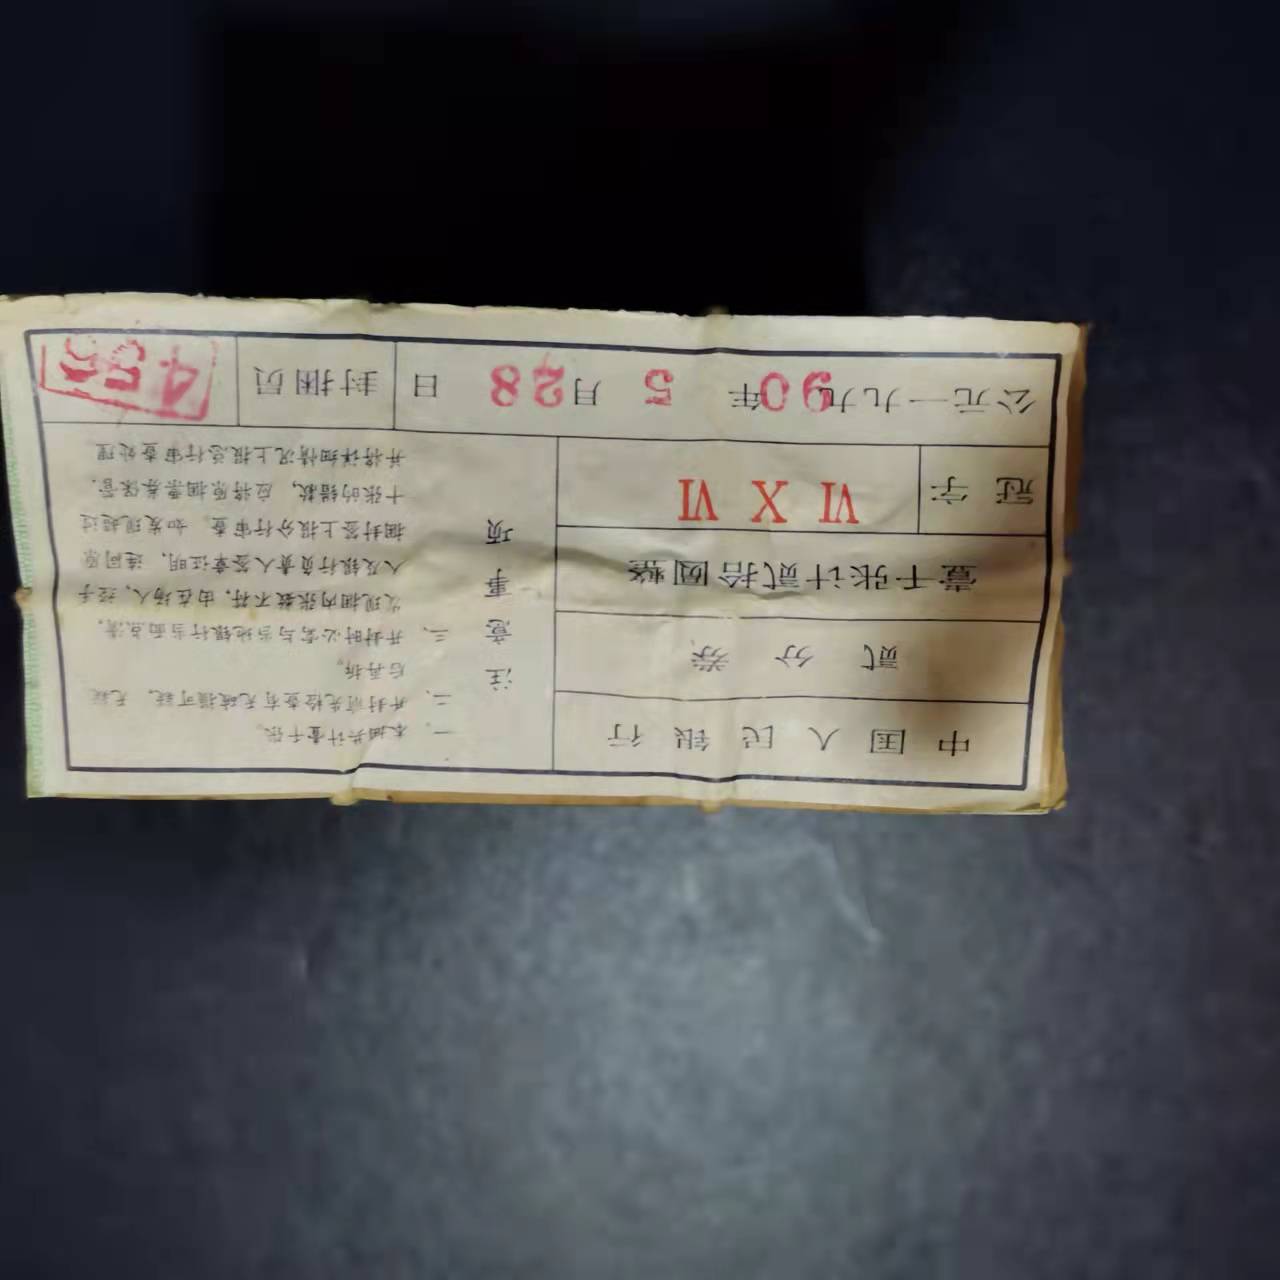 中国人民银行
贰分券
壹千张计贰拾圆整
冠字 VI X VI
公元一九九90年5月28日
封捆员 455
注意事项
一、本捆共计壹千张。
二、开封前先检查有无破损可疑，无疑
后再拆。
三、开封时必需与当地银行当面点清，
发现捆内张数不符，由在场人、经手
人及银行负责人签章证明，连同原
捆封签上报分行审查。如发现超过
十张的错款，应将原捆票券保管.
并将详细情况上报总行审查处理